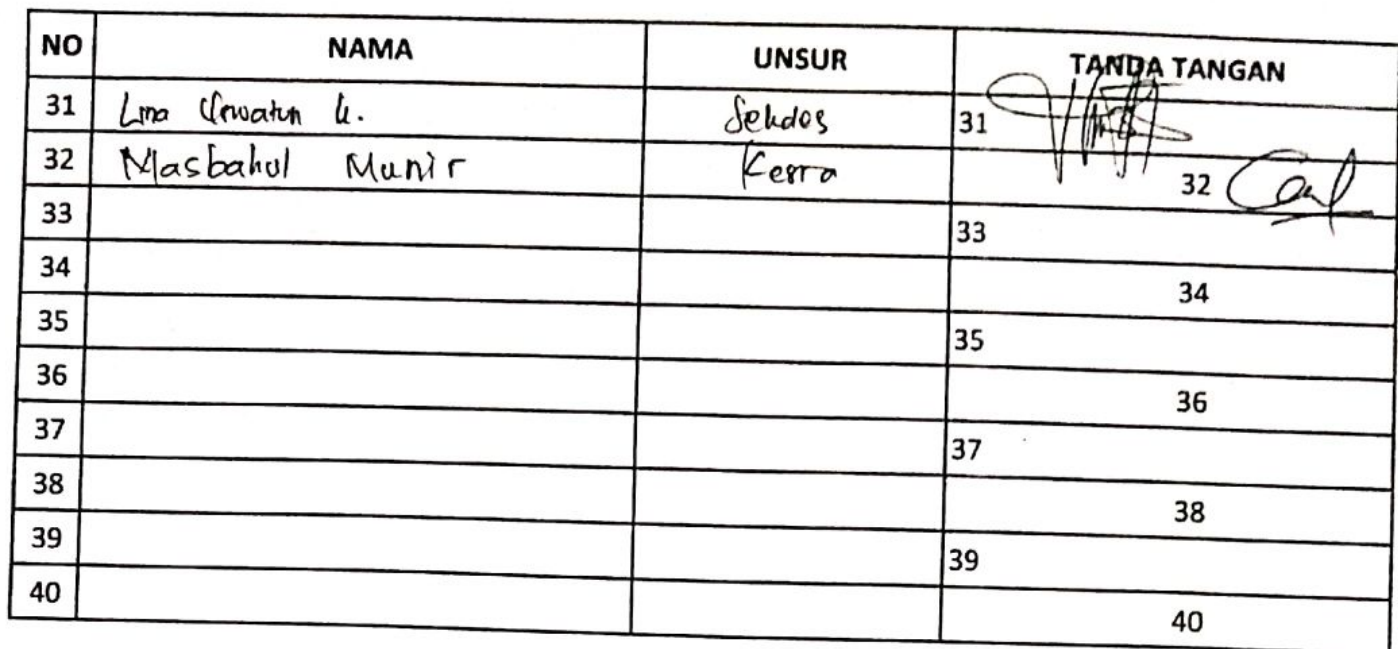 NO NAMA UNSUR TANDA TANGAN
31 Lina Urwatun U. Sekdes 31
32 Masbahul Munir Kesra 32
33 33
34 34
35 35
36 36
37 37
38 38
39 39
40 40